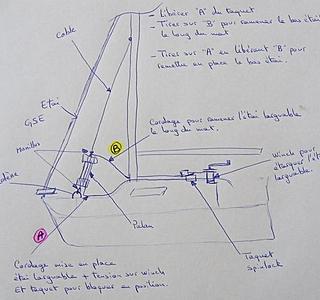 - Libérer "A" du taquet
- Tirer sur "B" pour ramener le bas étai
le long du mat
- Tirer sur "A" en libérant "B" pour
remettre en place le bas étai.
Cable
Etai
GSE
Manilles
Cordage pour ramener l'étai larguable
le long du mat.
B
Winch pour
étarquer l'étai
larguable.
Palan
A
Taquet
spinlock
Cordage mise en place
étai larguable + tension sur winch
Et taquet pour bloquer en position.